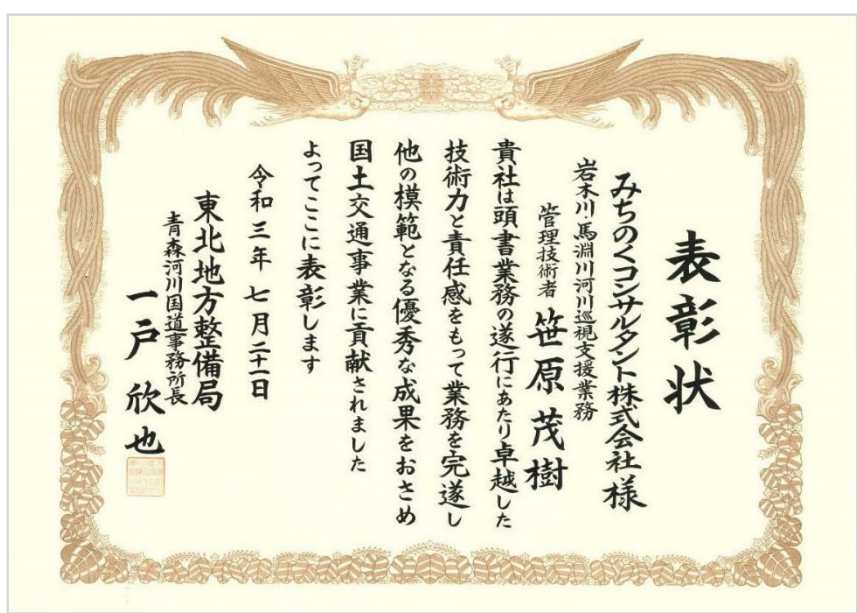 表彰状
みちのくコンサルタント株式会社様
岩木川・馬淵川河川巡視支援業務
管理技術者 笹原茂樹
貴社は頭書業務の遂行にあたり卓越した
技術力と責任感をもって業務を完遂し
他の模範となる優秀な成果をおさめ
国土交通事業に貢献されました
よってここに表彰します
令和三年七月二十一日
東北地方整備局
青森河川国道事務所長
一戸欣也